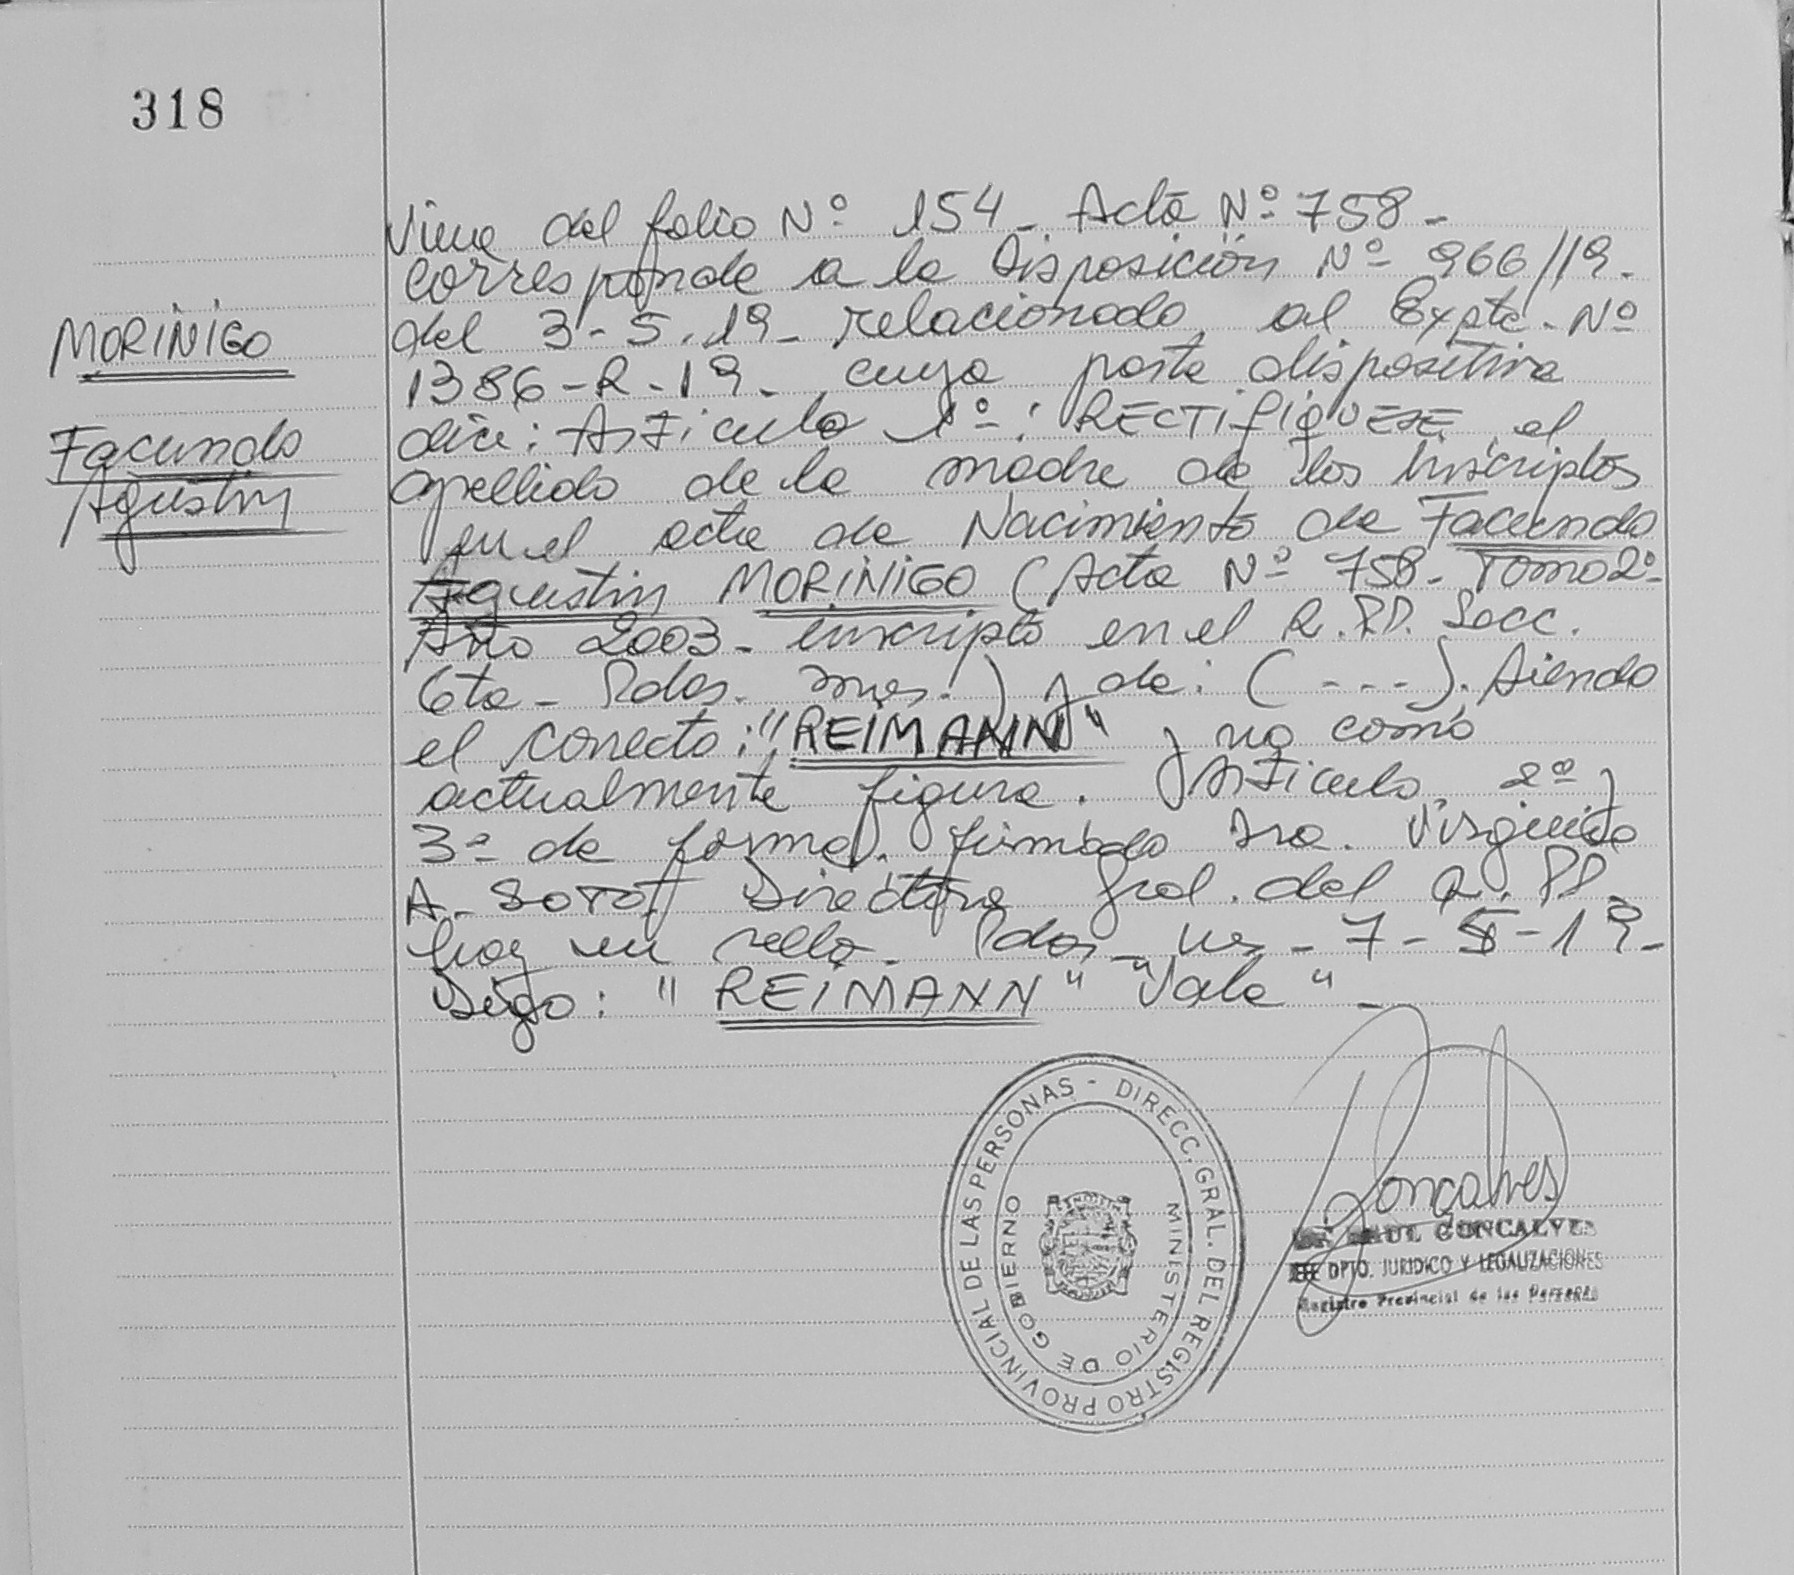 318
Viene del folio Nº 154 - Acta Nº 758 -
corresponde a la Disposición Nº 966/19.
del 3-5-19 - relacionado al Expte - Nº
1386-R-19 - cuya parte dispositiva
dice: Articulo 1º: RECTIFIQUESE el
apellido de la madre de los inscriptos
en el acta de Nacimiento de Facundo
Agustin MORINIGO (Acta Nº 758 - Tomo 2º -
Año 2003 - inscripto en el R.PP. Secc.
6ta - Pdas. Mnes.) y de: (---). Siendo
el correcto: "REIMANN" y no como
actualmente figura. Articulo 2º y
3º de forma. firmado Sra.
A. SOTO. Directora Gral. del R.PP.
hay un sello. Pdas - Mes - 7-5-19 -
Digo: "REIMANN" "Vale" -
MORINIGO
Facundo
Agustin
DIRECC. GRAL. DEL REGISTRO PROVINCIAL DE LAS PERSONAS -
MINISTERIO DE GOBIERNO
Gonçalves
RAUL GONCALVES
JEFE DPTO. JURIDICO Y LEGALIZACIONES
Registro Provincial de las Personas